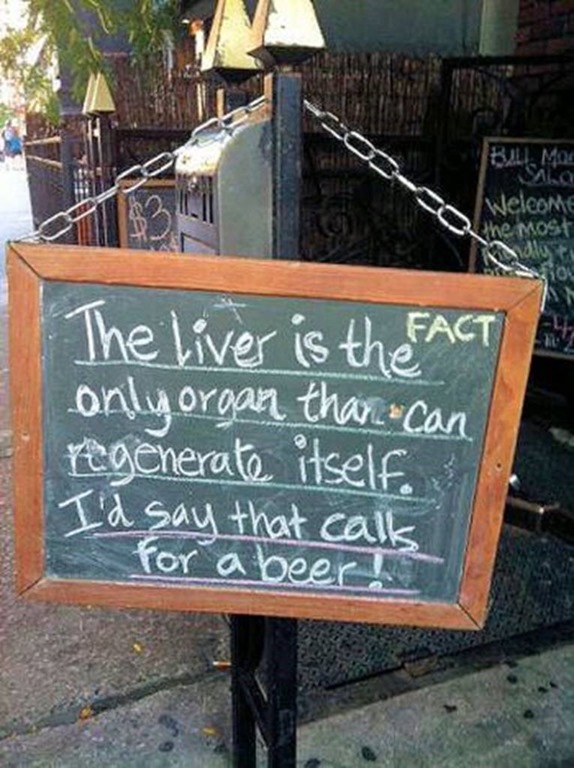 FACT
The liver is the
only organ than can
regenerate itself.
I'd say that calls
for a beer!
$3
BULL Moo
SALO
Welcome
the most